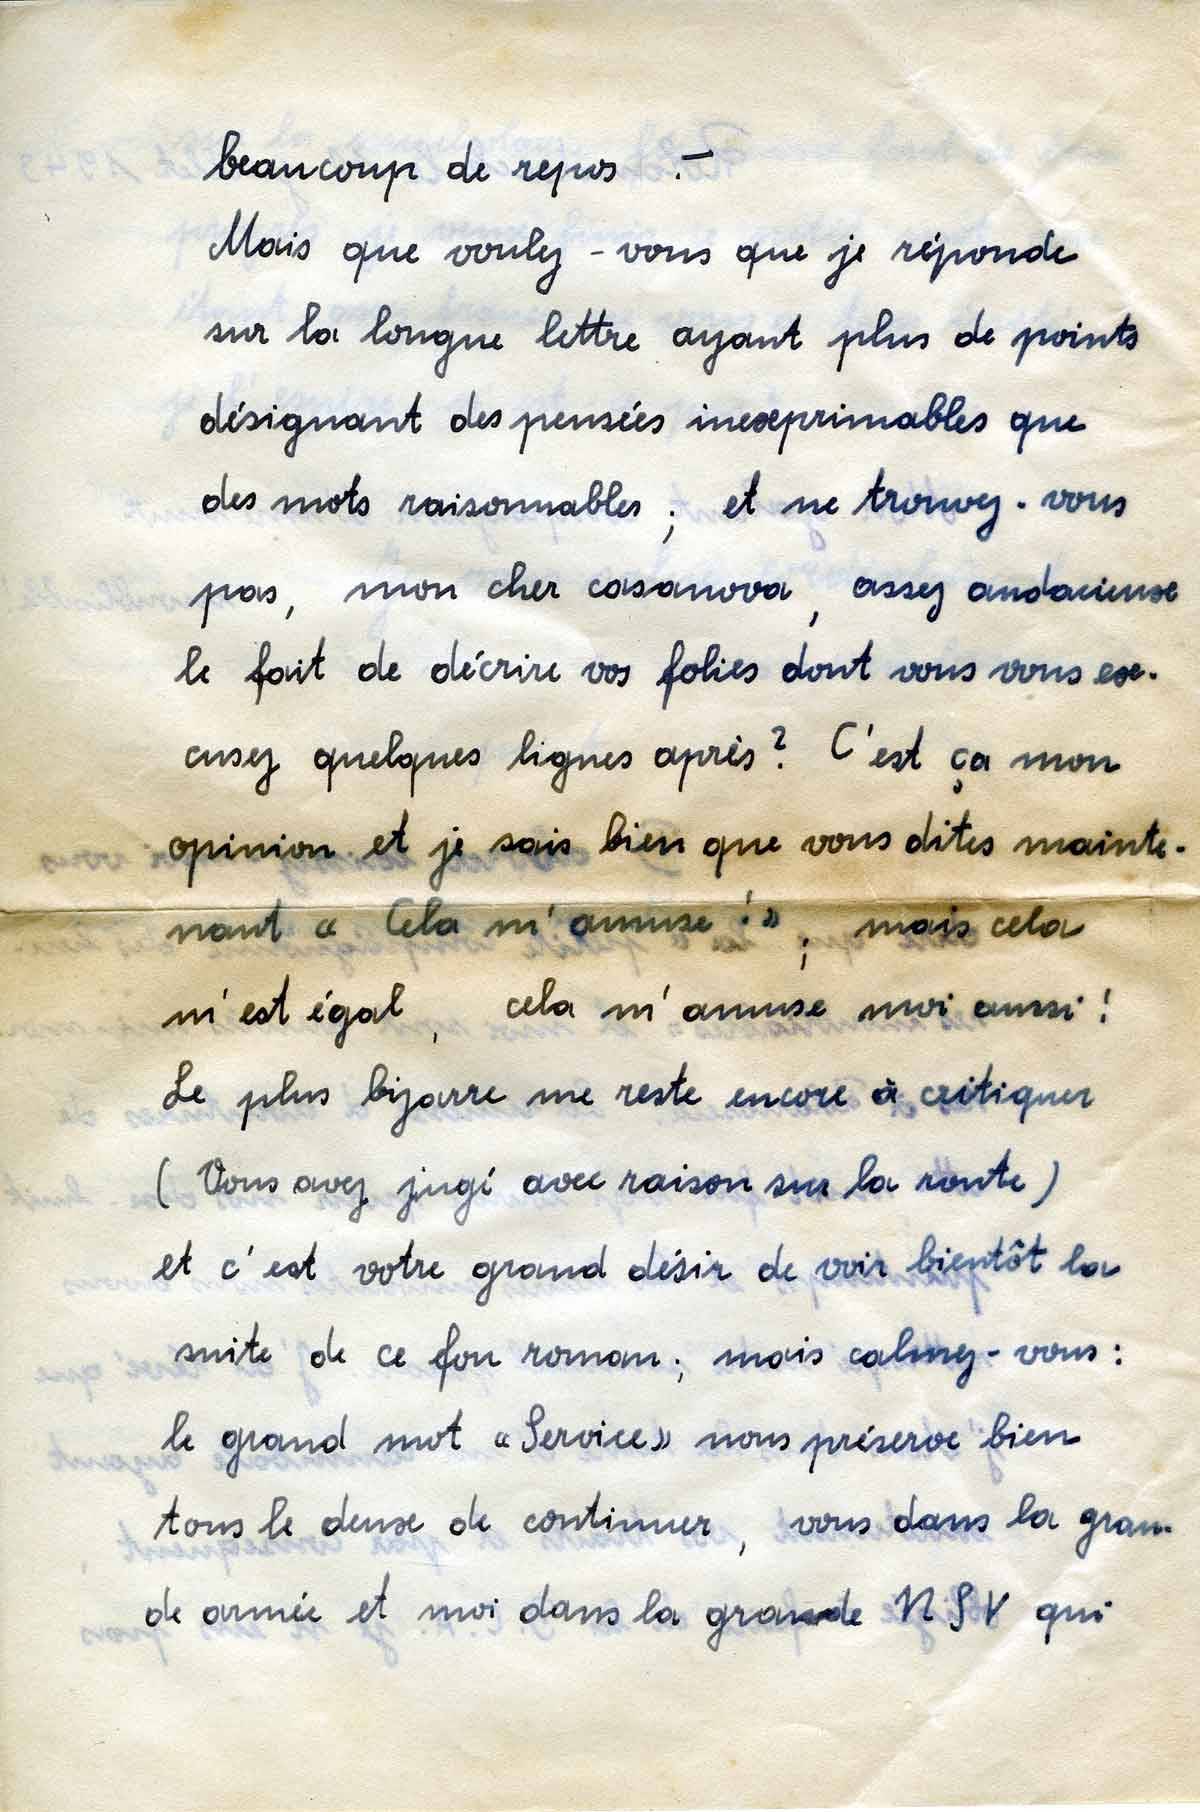 beaucoup de repos .—
Mais que voulez-vous que je réponde
sur la longue lettre ayant plus de points
désignant des pensées inexprimables que
des mots raisonnables ; et ne trouvez-vous
pas, mon cher casanova, assez audacieuse
le fait de décrire vos folies dont vous vous ex-
cusez quelques lignes après? C'est ça mon
opinion et je sais bien que vous dites mainte-
nant « Cela m'amuse ! » ; mais cela
m'est égal, cela m'amuse moi aussi !
Le plus bizarre me reste encore à critiquer
( Vous avez jugé avec raison sur la route )
et c'est votre grand désir de voir bientôt la
suite de ce fou roman ; mais calmez-vous :
le grand mot « Service » nous préserve bien
tous le deux de continuer, vous dans la gran-
de armée et moi dans la grande NSV qui